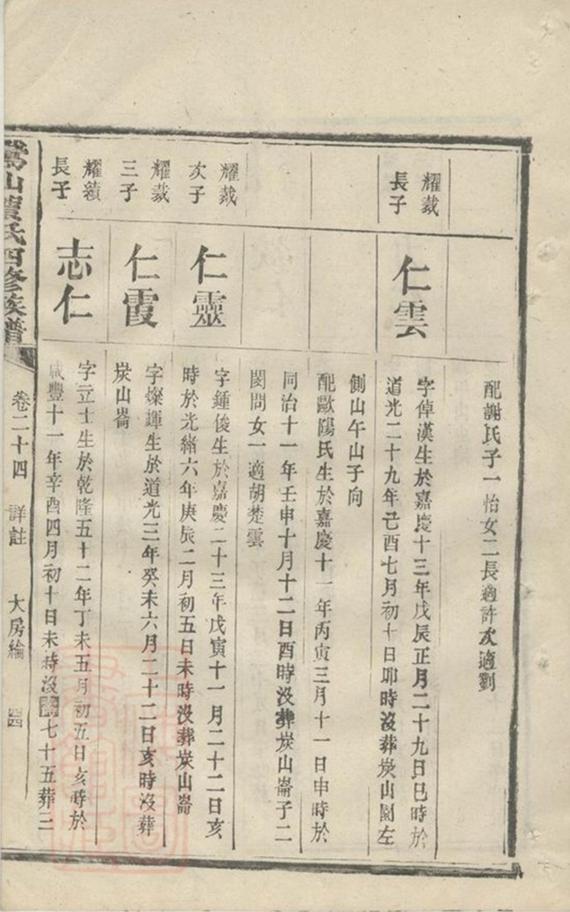 配謝氏子一怡女二長適許次適劉
耀裁
長子
仁雲
字倬漢生於嘉慶十三年戊辰正月二十九日巳時於
道光二十九年己酉七月初十日卯時沒葬炭山園左
側山午山子向
配歐陽氏生於嘉慶十一年丙寅三月十一日申時於
同治十一年壬申十月十二日酉時沒葬炭山崙子二
閔問女一適胡楚雲
耀裁
次子
仁靈
字鍾俊生於嘉慶二十三年戊寅十一月二十二日亥
時於光緒六年庚辰二月初五日未時沒葬炭山崙
耀裁
三子
仁霞
字燦輝生於道光三年癸未六月二十二日亥時沒葬
炭山崙
耀績
長子
志仁
字立士生於乾隆五十二年丁未五月初五日亥時於
咸豐十一年辛酉四月初十日未時沒壽七十五葬三
山 氏四修族譜
卷二十四
詳註
大房綸